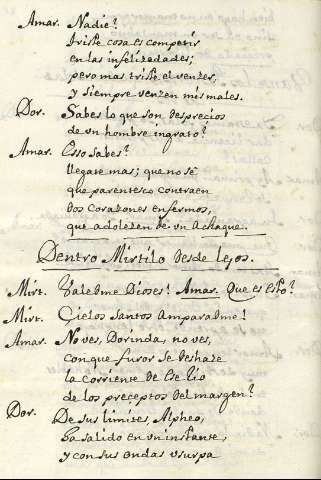 Amar. Nadie?
triste cosa es competir
en las infelizedades;
pero mas triste el venzer,
y siempre venzen mis males.
Dor. Sabes lo que son desprecios
de un hombre ingrato?
Amar. Esso sabes?
llegate mas; que no sé
que parentesco contraen
dos corazones enfermos,
que adolezen de un achaque.
Dentro Mirtilo desde lejos.
Mirt. Valedme Dioses! Amar. Que es esto?
Mirt. Cielos santos amparadme!
Amar. No ves, Dorinda, no ves,
con que furor se deshaze
la corriente de ese Rio
de los preceptos del margen?
Dor. De sus limites, Alpheo,
ha salido en un instante,
y con sus ondas usurpa